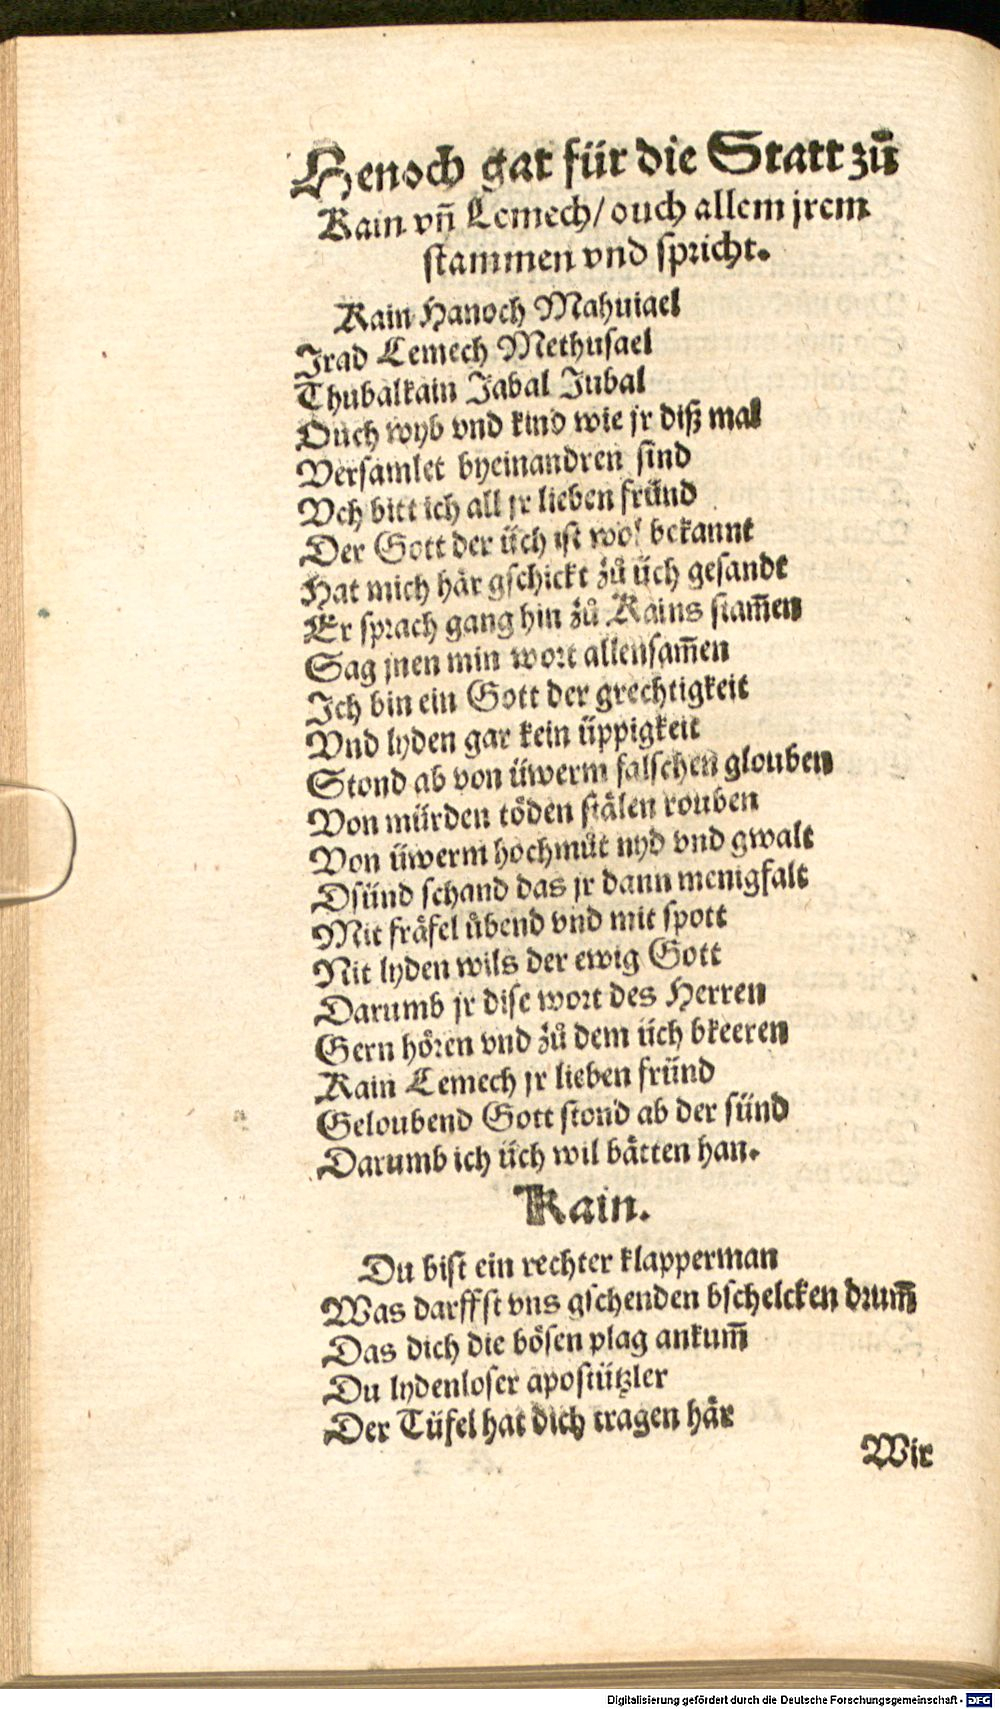 Henoch gat für die Statt zů
Kain vn̄ Lemech/ ouch allem jrem
stammen vnd spricht.
Kain Hanoch Mahuiael
Irad Lemech Methusael
Thubalkain Jabal Jubal
Ouch wyb vnd kind wie jr diß mal
Versamlet byeinandren sind
Vch bitt ich all jr lieben fründ
Der Gott der üch ist wol bekannt
Hat mich här gschickt zů üch gesandt
Er sprach gang hin zů Kains stam̄en
Sag jnen min wort allensam̄en
Ich bin ein Gott der grechtigkeit
Vnd lyden gar kein üppigkeit
Stond ab von üwerm falschen glouben
Von mürden töden stälen rouben
Von üwerm hochmůt nyd vnd gwalt
Dsünd schand das jr dann menigfalt
Mit fräfel übend vnd mit spott
Nit lyden wils der ewig Gott
Darumb jr dise wort des Herren
Gern hören vnd zů dem üch bkeeren
Kain Lemech jr lieben fründ
Geloubend Gott stond ab der sünd
Darumb ich üch wil bätten han.
Kain.
Du bist ein rechter klapperman
Was darffst vns gschenden bschelcken drum̄
Das dich die bösen plag ankum̄
Du lydenloser apostützler
Der Tüfel hat dich tragen här
Wir
Digitalisierung gefördert durch die Deutsche Forschungsgemeinschaft - DFG